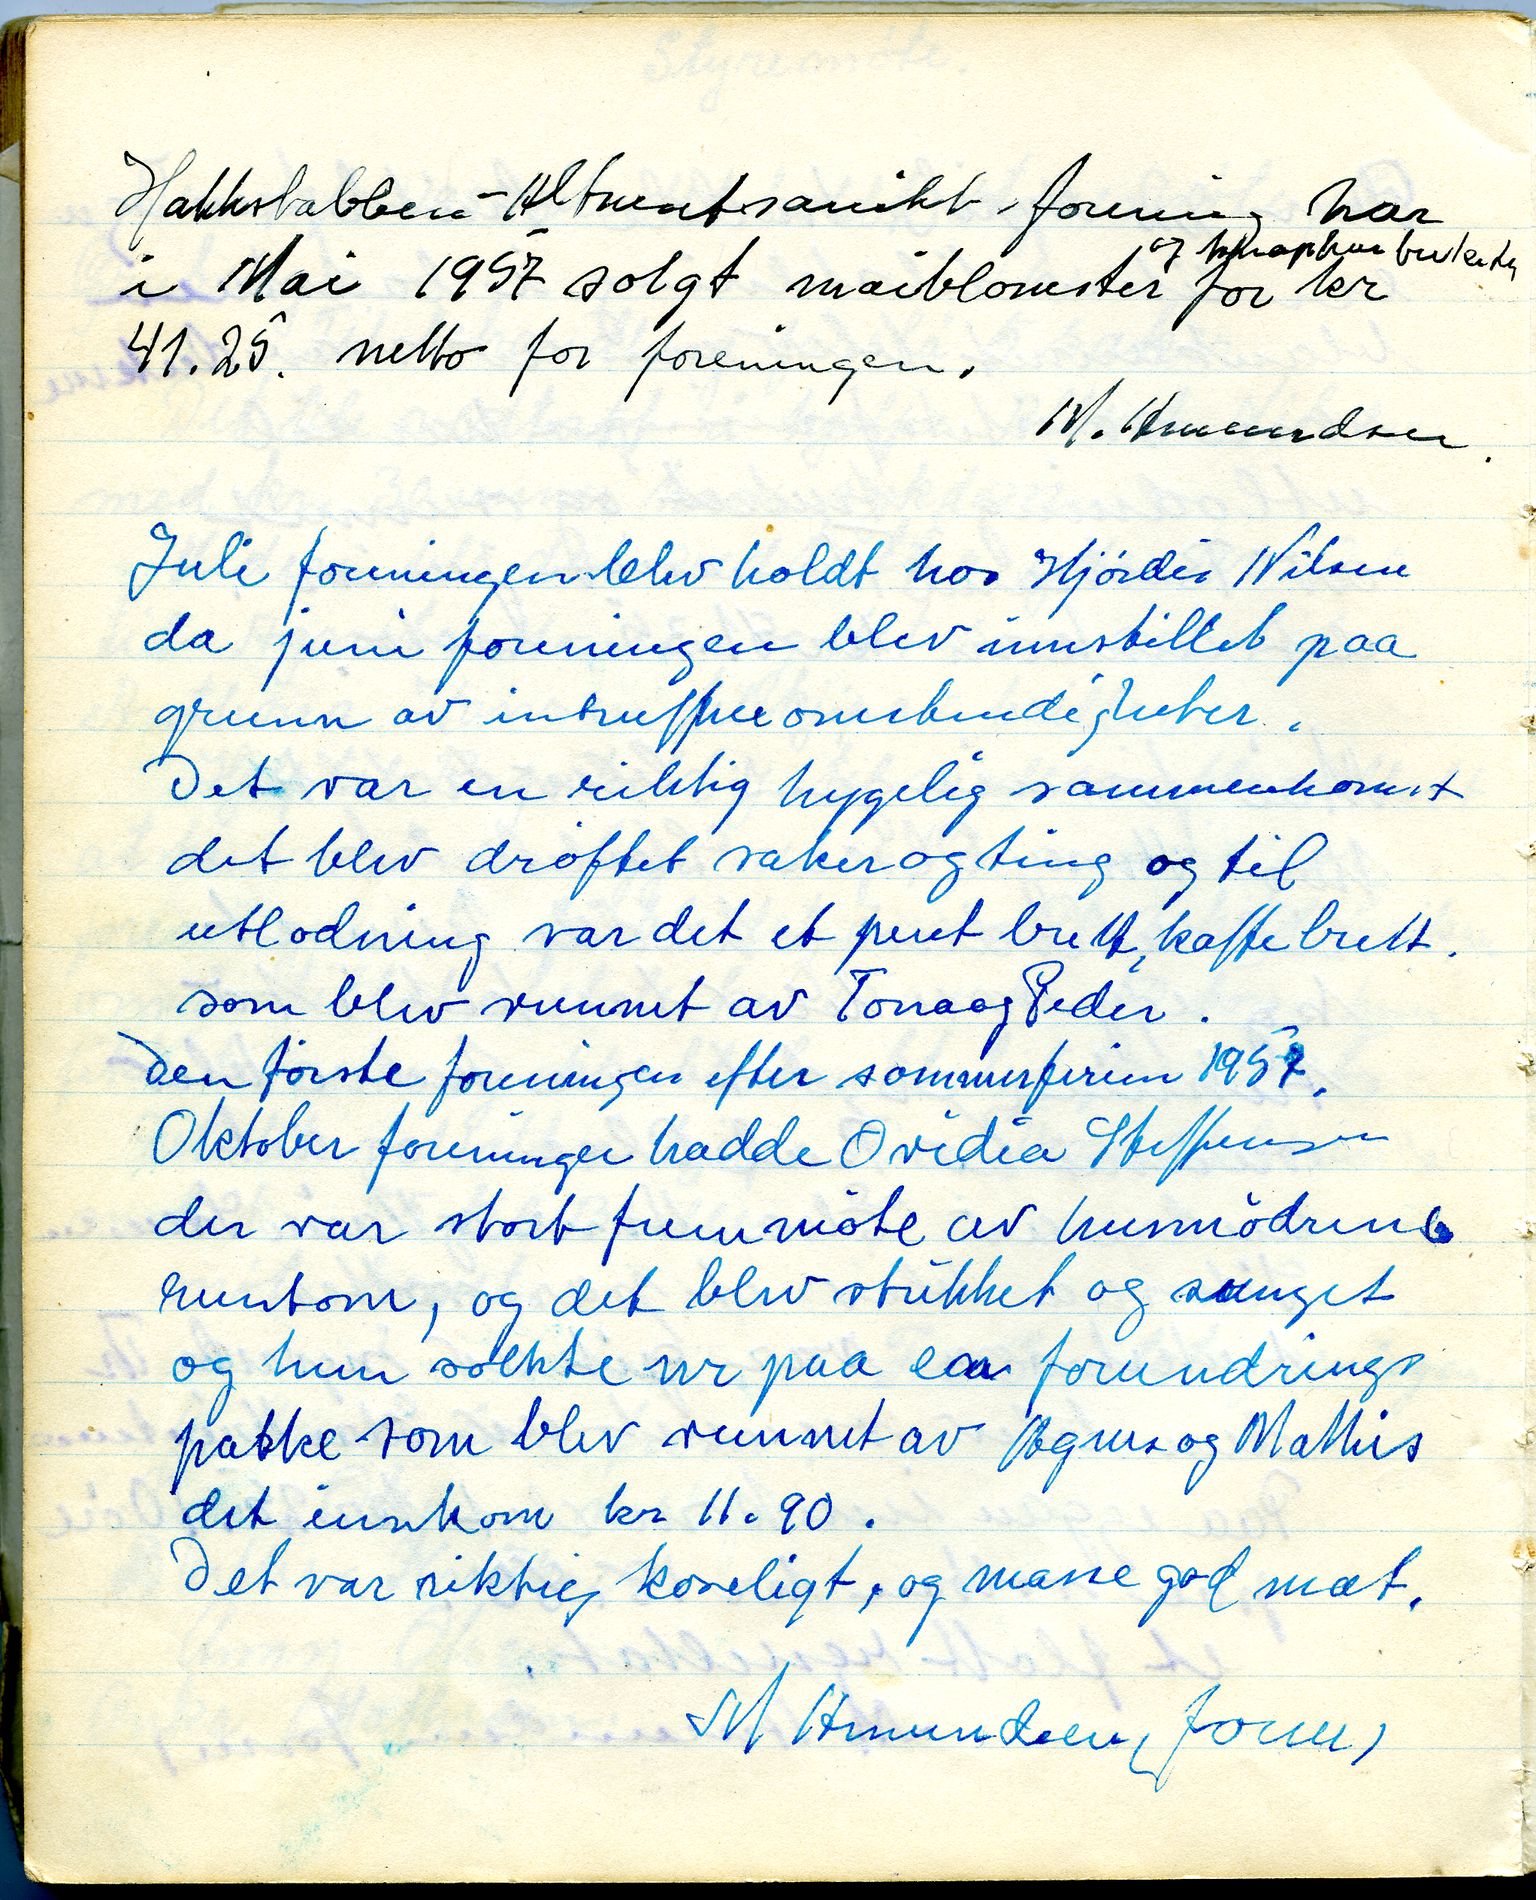 Hakkstabben-Altnesets sanikt. forening har
i Mai 1957 solgt maiblomster og knaphul buketter for kr
41.25. netto for foreningen.
M. Amundsen.
Juli foreningen blev holdt hos Hjördis Nilsen
da juni foreningen blev innstillet paa
grunn av intruffne omstendigheter.
Det var en riktig hygelig sammenkomst
det blev dröftet saker og ting og til
utlodning var det et pent brett, kaffebrett.
som blev vunnet av Tona og Peder.
Den förste foreningen efter sommerferien 1957.
Oktober foreningen hadde Ovidia Steffensen
der var stort fremmöte av husmödrene
rundtom, og det blev strikket og sunget
og hun solkte nr paa en forundrings
pakke som blev vunnet av Agnes og Mathis
det innkom kr 11.90.
Det var riktig koseligt, og masse god mat.
M Amundsen, form,